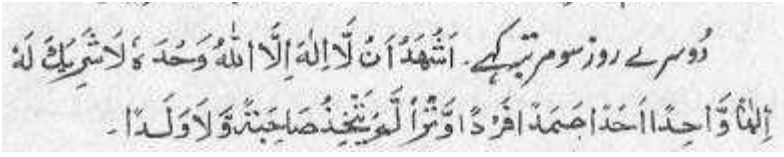 دُوسرے روز سو مرتبہ کہے۔ اَشْهَدُ اَنْ لَّا اِلٰهَ اِلَّا اللّٰهُ وَحْدَهٗ لَا شَرِيْكَ لَهٗ
اِلٰهًا وَّاحِدًا اَحَدًا صَمَدًا فَرْدًا وَّتْرًا لَّمْ يَتَّخِذْ صَاحِبَةً وَّلَا وَلَدًا۔